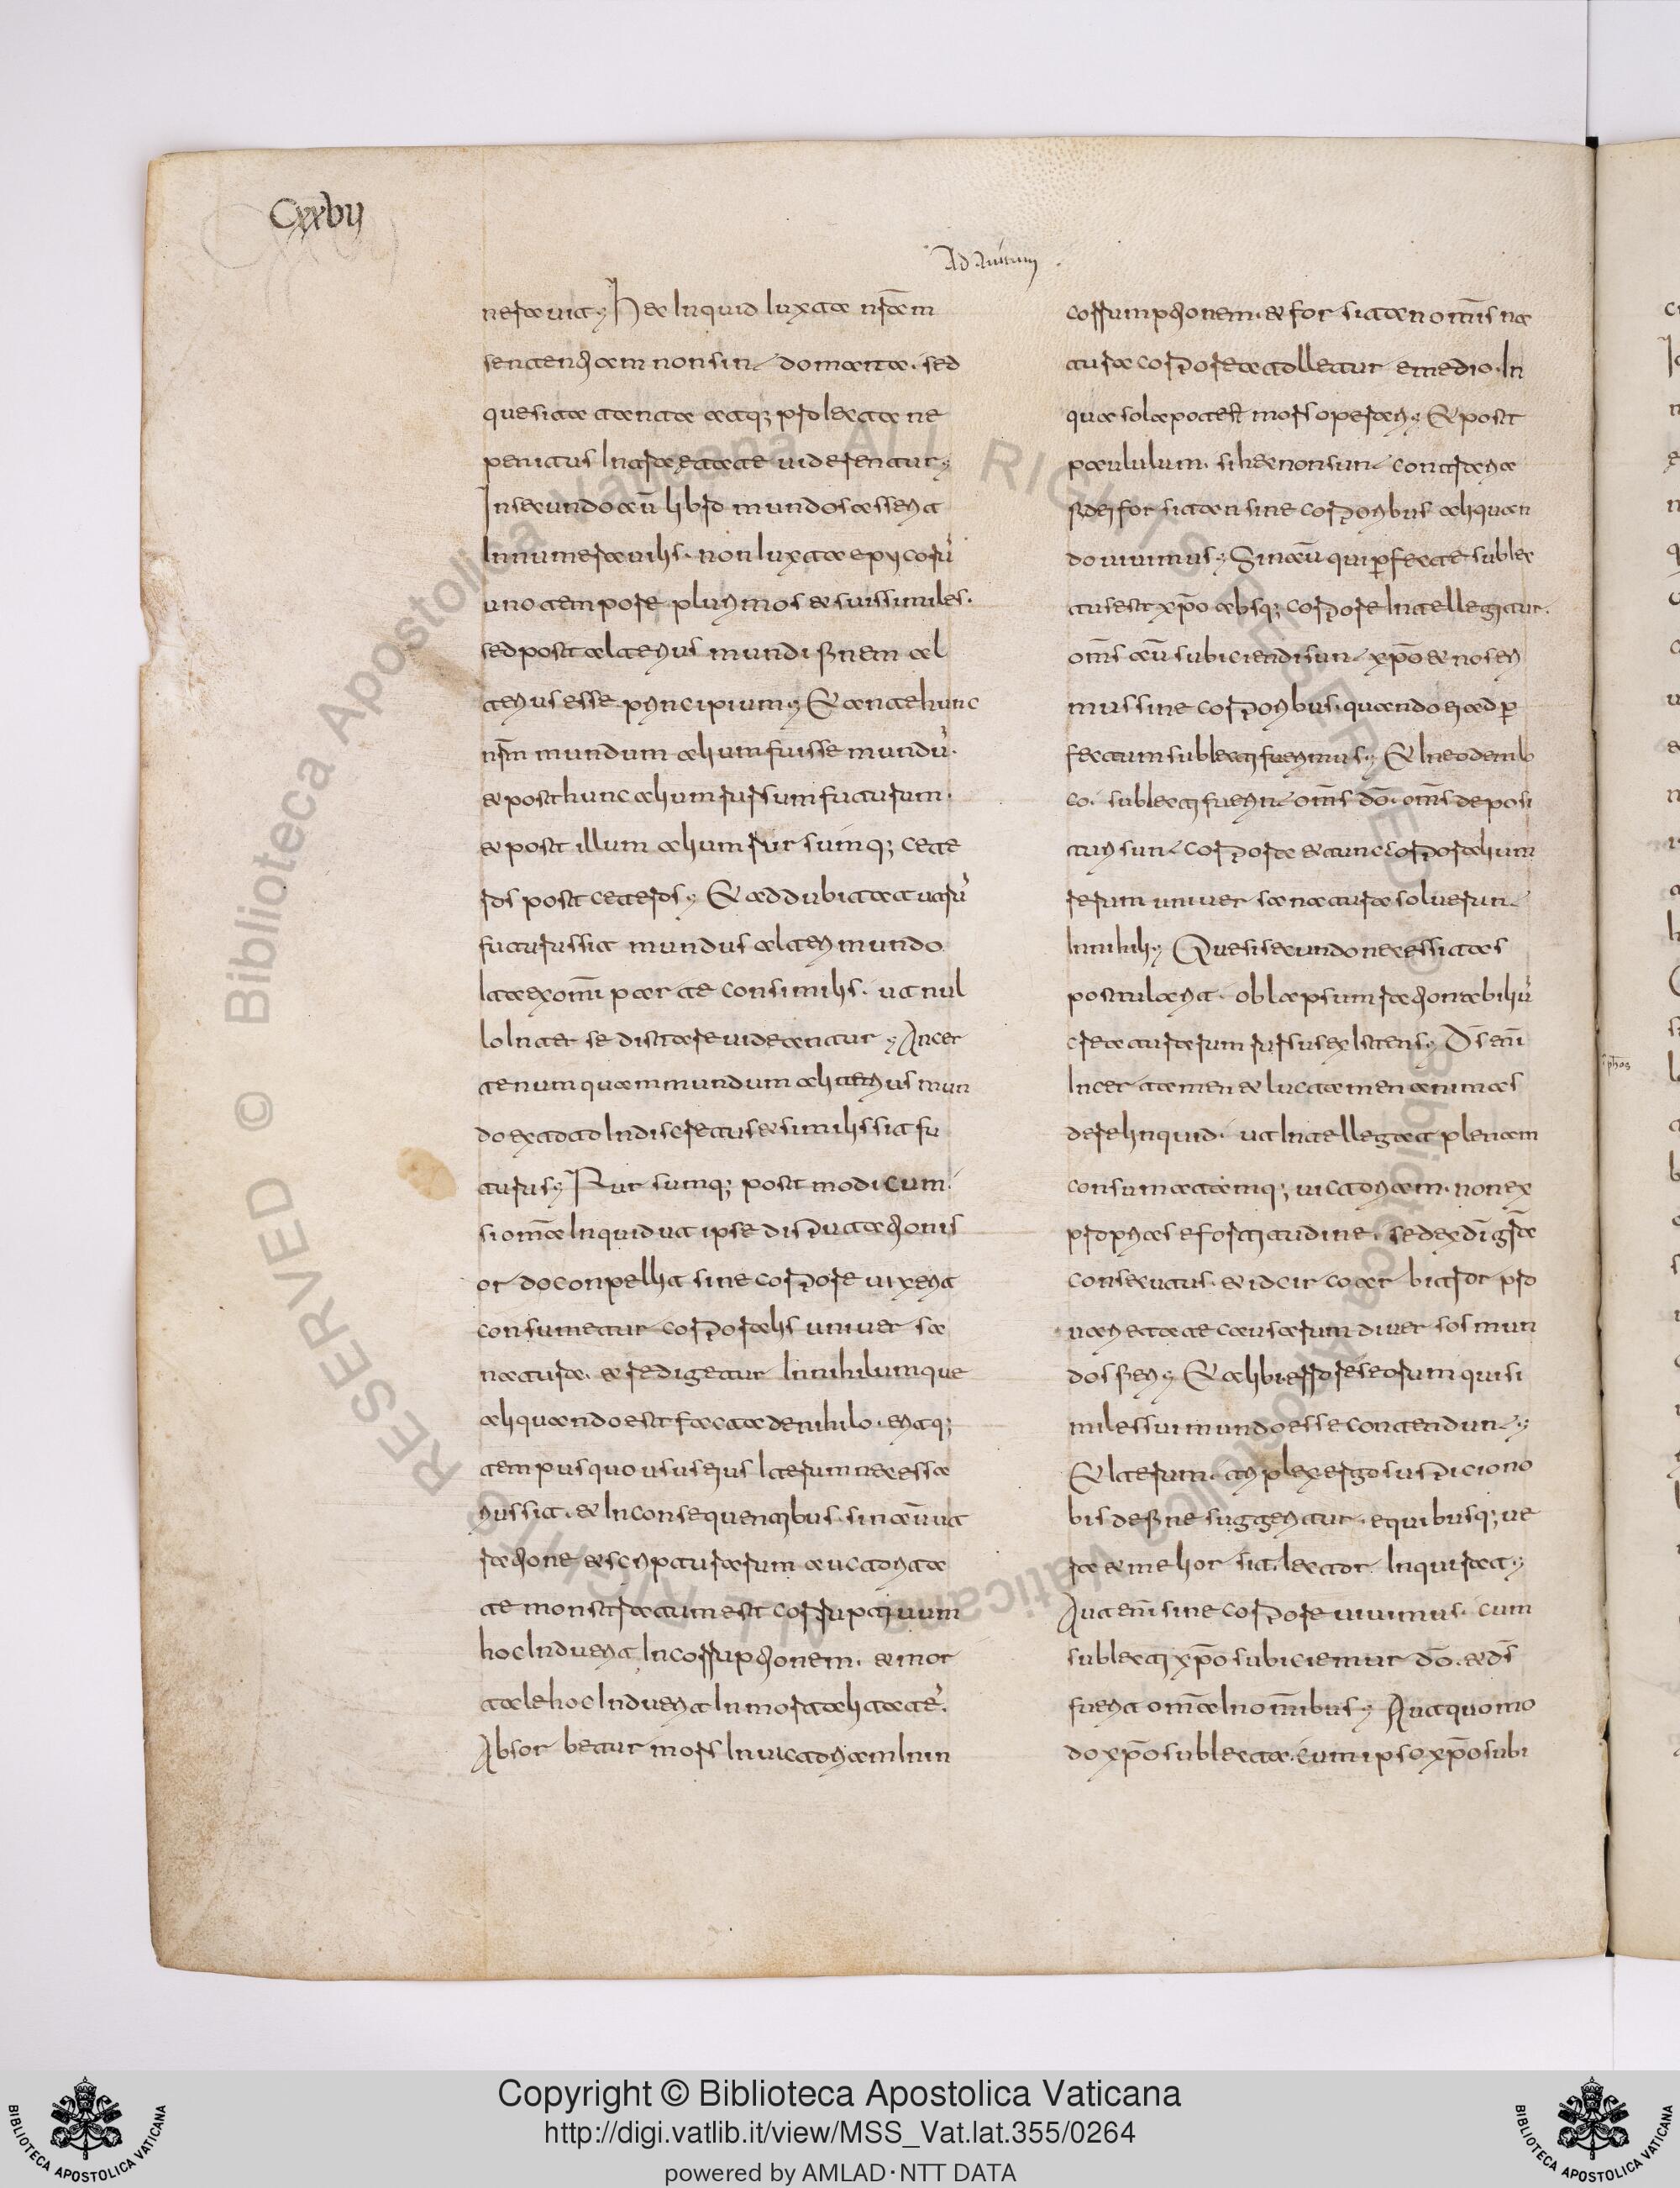 Cxxvij
Ad Auitum
nerauit; Hec inquid iuxta nr̄am
sententiam non sint domata. sed
quesita tanta atq; proiecta ne
penitus intractate uiderentur;
In secundo aū libro mundos asserit
innumerabilis. non iuxta epycorū
uno tempore plurimos & sui similes.
sed post alterius mundi finem al
terius esse principium; Et ante hunc
nr̄m mundum alium fuisse mundū.
& post hunc alium rursum futurum.
& post illum alium rursumq; cete
ros post ceteros; Et addubitat utrū
futurus sit mundus alteri mundo
ita ex omni parte consimilis. ut nul
lo inter se distare uideantur; An cer
te numquam mundum alii alterius mun
do ex toto indiscretus & similis sit fu
turus; Rursumq; post modicum.
si om̄a inquid ut ipse disputationis
ordo conpellit sine corpore uixerit
consumetur corporalis uniuersa
natura. & redigetur in nihilum que
aliquando est facta de nihilo. eritq;
tempus quo usus eius iterum necessa
rius sit. & in consequentibus. sin aū ut
ratione & scripturarum auctorita
te monstratum est corruptiuum
hoc induerit incorruptionem. & mor
tale hoc induerit inmortalitatē.
Absorbetur mors in uictoriam & in in
corruptionem. & forsitan om̄is na
tura corporea tolletur e medio. in
qua sola potest mors operari; Et post
paululum. si hec non sunt contraria
fidei forsitan sine corporibus aliquan
do uiuimus; Sin aū qui perfecte subiec
tus est xp̄o absq; corpore intellegitur.
om̄s aū subiciendi sunt xp̄o & nos eri
mus sine corporibus. quando ei ad per
fectum subiecti fuerimus; Et in eodem lo
co. si subiecti fuerint om̄s dō. om̄s deposi
turi sunt corpora & tunc corporalium
rerum uniuersa natura soluetur
in nihili; Que si secundo necessitas
postularit. ob lapsum rationabiliū
creaturarum rursus existens; Ds̄ eni
in certamen & luctamen animas
derelinquid. ut intellegant plenam
consumatamq; uictoriam. non ex
propria se fortitudine. sed ex dī gr̄a
consecutus. & idcirco arbitror pro
uarietate causarum diuersos mun
dos fieri; Et alibi. errores eorum qui si
miles sui mundo esse contendunt;
Et iterum. triplex ergo suspicio no
bis de fine suggeritur. e quibusq; ue
ra & melior sit lector inquirat;
Aut eni sine corpore uiuimus. cum
subiecti xp̄o subiciemur dō. & ds̄
fuerit om̄a in om̄ibus; Aut quomo
do xp̄o subiecta. cum ipso xp̄o subi
Copyright © Biblioteca Apostolica Vaticana
http://digi.vatlib.it/view/MSS_Vat.lat.355/0264
powered by AMLAD·NTT DATA